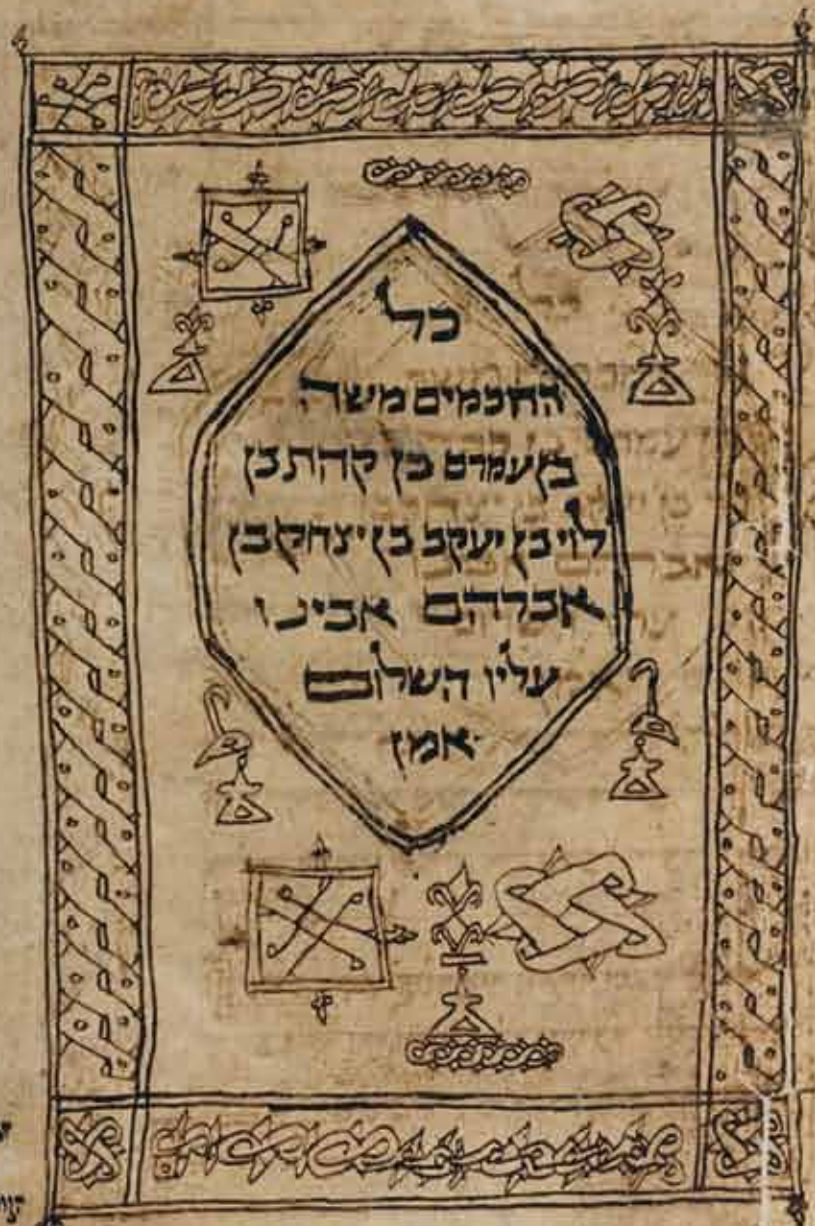 כל
החכמים משה
בן עמרם בן קהת בן
לוי בן יעקב בן יצחק בן
אברהם אבינו
עליו השלום
אמן